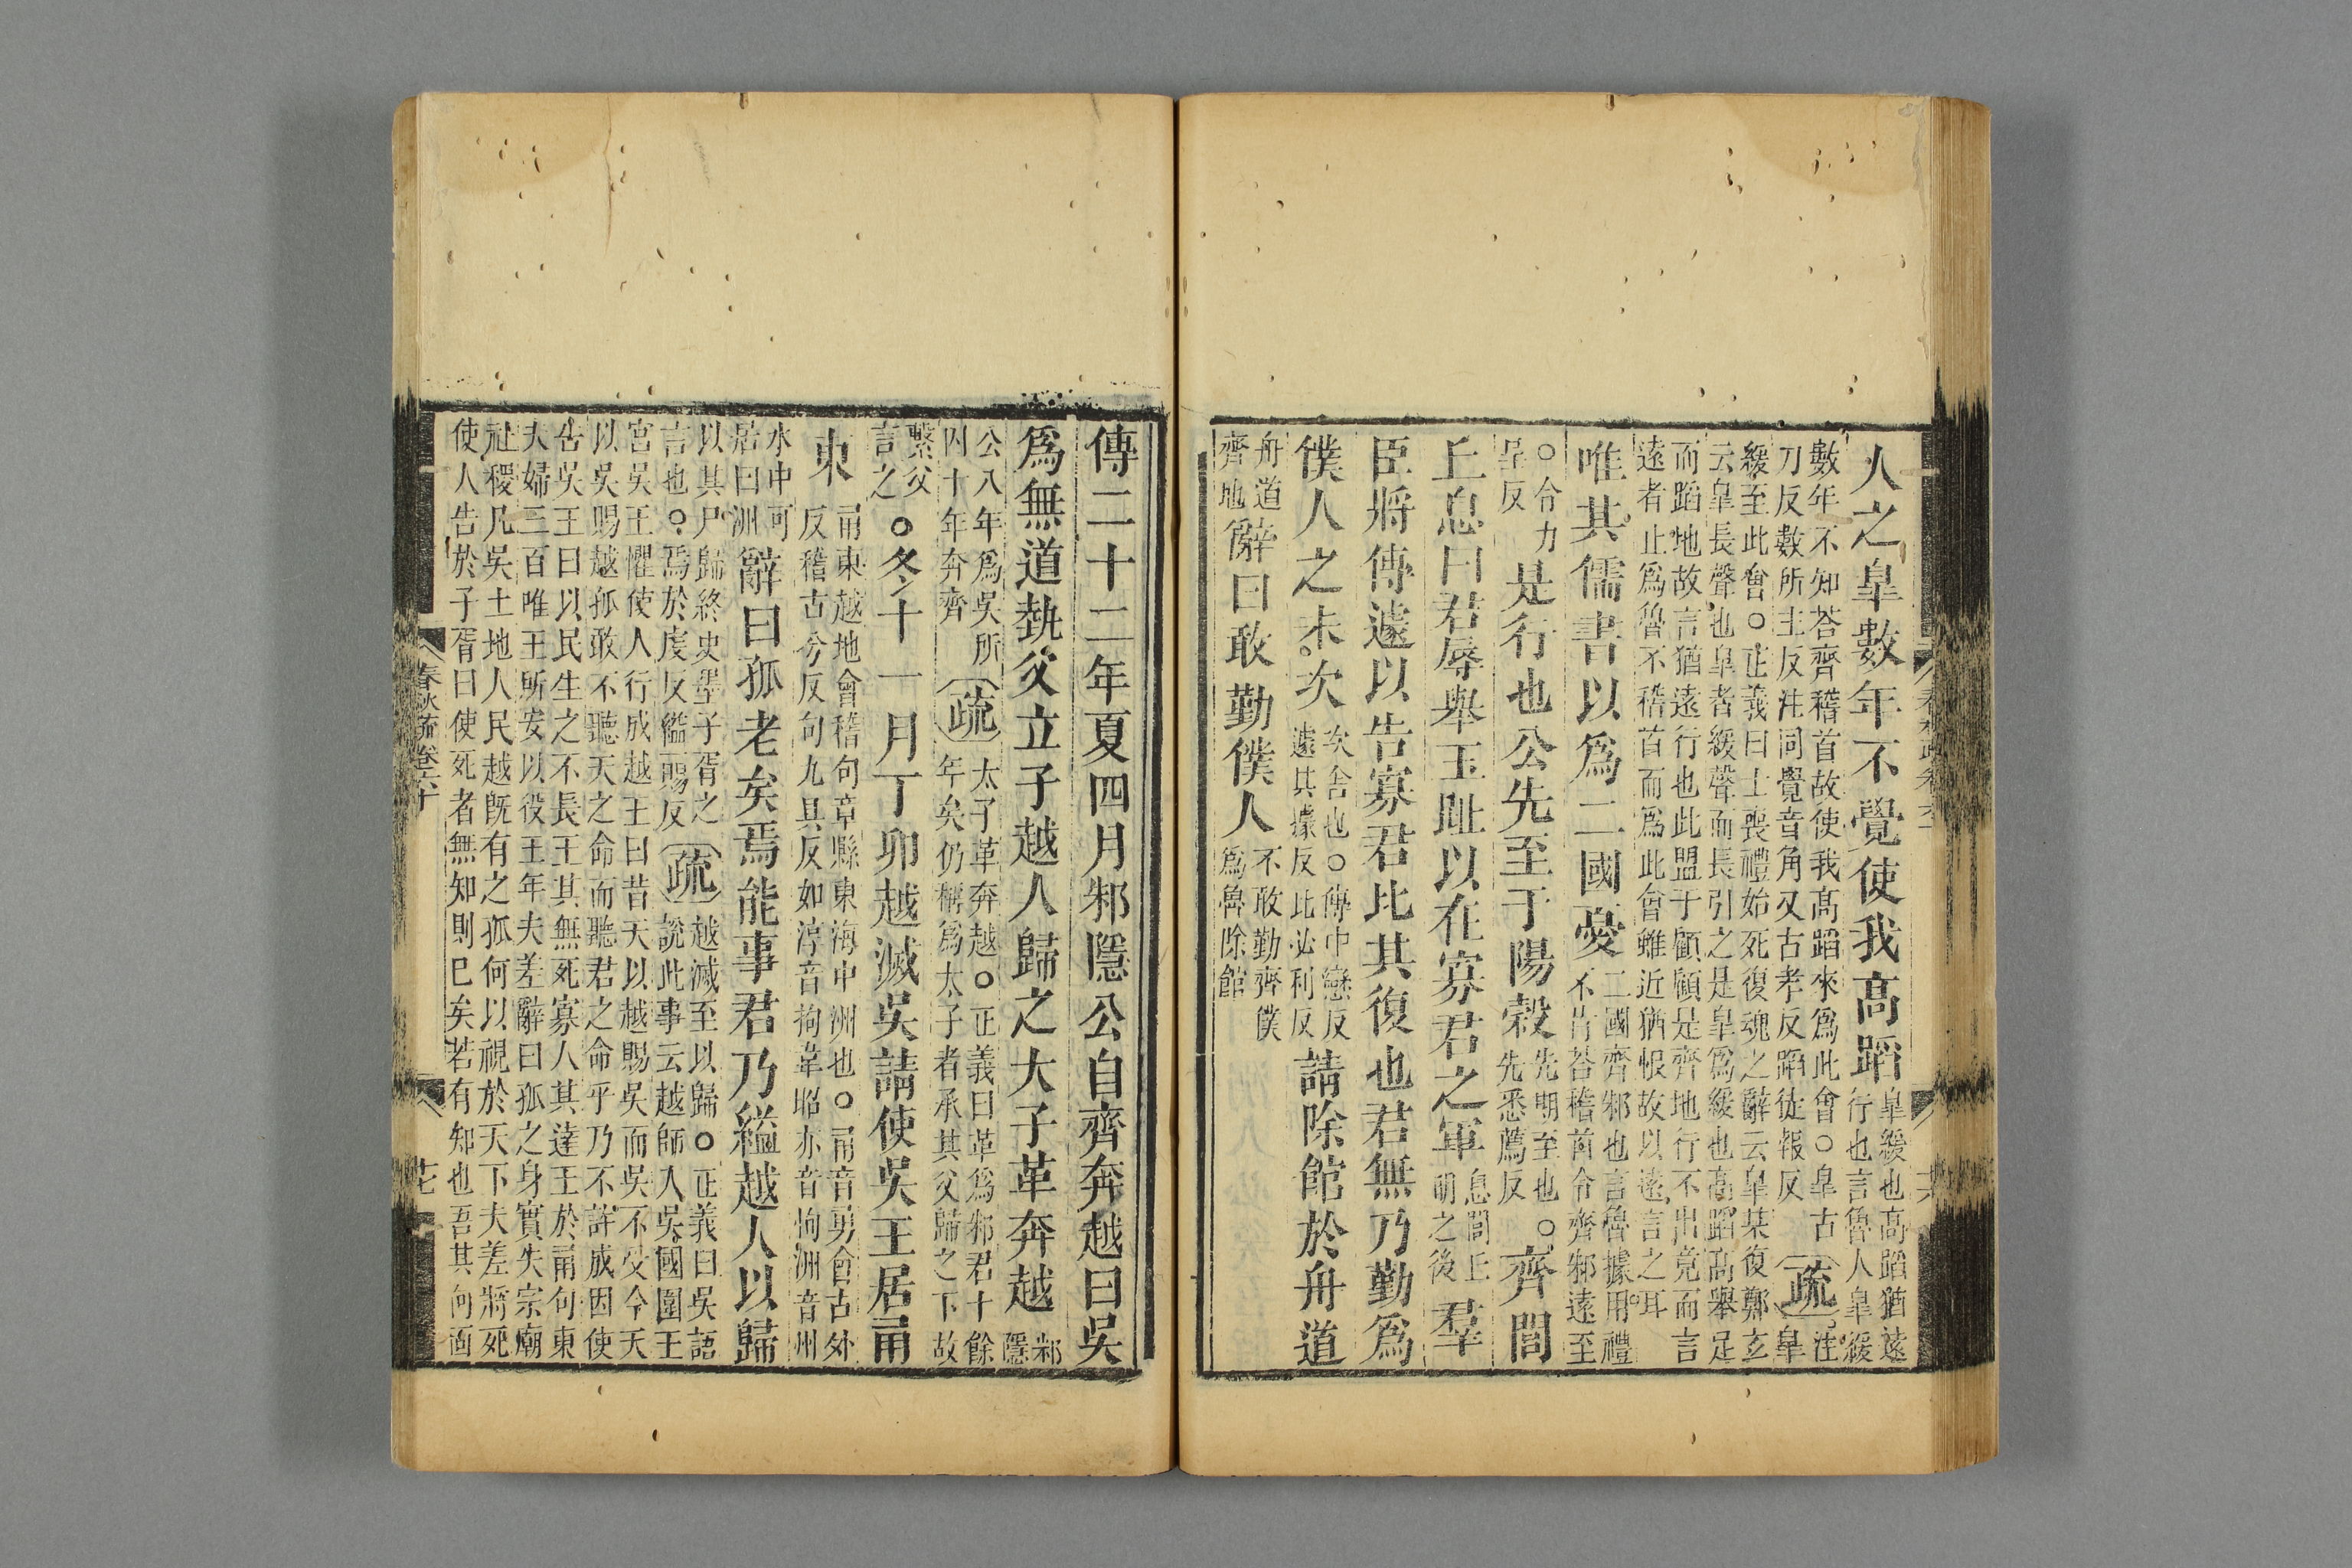 人之皐數年不覺使我高蹈皐緩也高蹈猶遠行也言魯人皐緩
數年不知荅齊稽首故使我高蹈來爲此會○皐古刀反數所主反注同覺音角又古孝反蹈徒報反疏注皐
緩至此會○正義曰士喪禮始死復魂之辭云皐某復鄭玄
云皐長聲也皐者緩聲而長引之是皐爲緩也高蹈高舉足
而蹈地故言猶遠行也此盟于顧顧是齊地行不出竟而言
遠者止爲魯不稽首而爲此會雖近猶恨故以遠言之耳
唯其儒書以爲二國憂二國齊邾也言魯據用禮不肯荅稽首令齊邾遠至
○令力呈反是行也公先至于陽穀先期至也○先悉薦反齊閭
丘息曰君辱舉玉趾以在寡君之軍息閭丘明之後羣
臣將傳遽以告寡君比其復也君無乃勤爲
僕人之未次次舍也○傳中戀反遽其據反比必利反請除館於舟道
舟道齊地辭曰敢勤僕人不敢勤齊僕爲魯除館
傳二十二年夏四月邾隱公自齊奔越曰吳
爲無道執父立子越人歸之大子革奔越邾隱
公八年爲吳所囚十年奔齊疏太子革奔越○正義曰革爲邾君十餘年矣仍稱爲太子者承其父歸之下故
繫父言之○冬十一月丁卯越滅吳請使吳王居甬
東甬東越地會稽句章縣東海中洲也○甬音勇會古外反稽古兮反句九具反如淳音拘韋昭亦音拘洲音州
水中可居曰洲辭曰孤老矣焉能事君乃縊越人以歸
以其尸歸終史墨子胥之言也○焉於虔反縊一賜反疏越滅至以歸○正義曰吳語說此事云越師入吳國圍王
宮吳王懼使人行成越王曰昔天以越賜吳而吳不受今天
以吳賜越孤敢不聽天之命而聽君之命乎乃不許成因使
告吳王曰以民生之不長王其無死寡人其達王於甬句東
夫婦三百唯王所安以役王年夫差辭曰孤之身實失宗廟
社稷凡吳土地人民越旣有之孤何以視於天下夫差將死
使人告於子胥曰使死者無知則已矣若有知也吾其何面
春秋疏卷六十